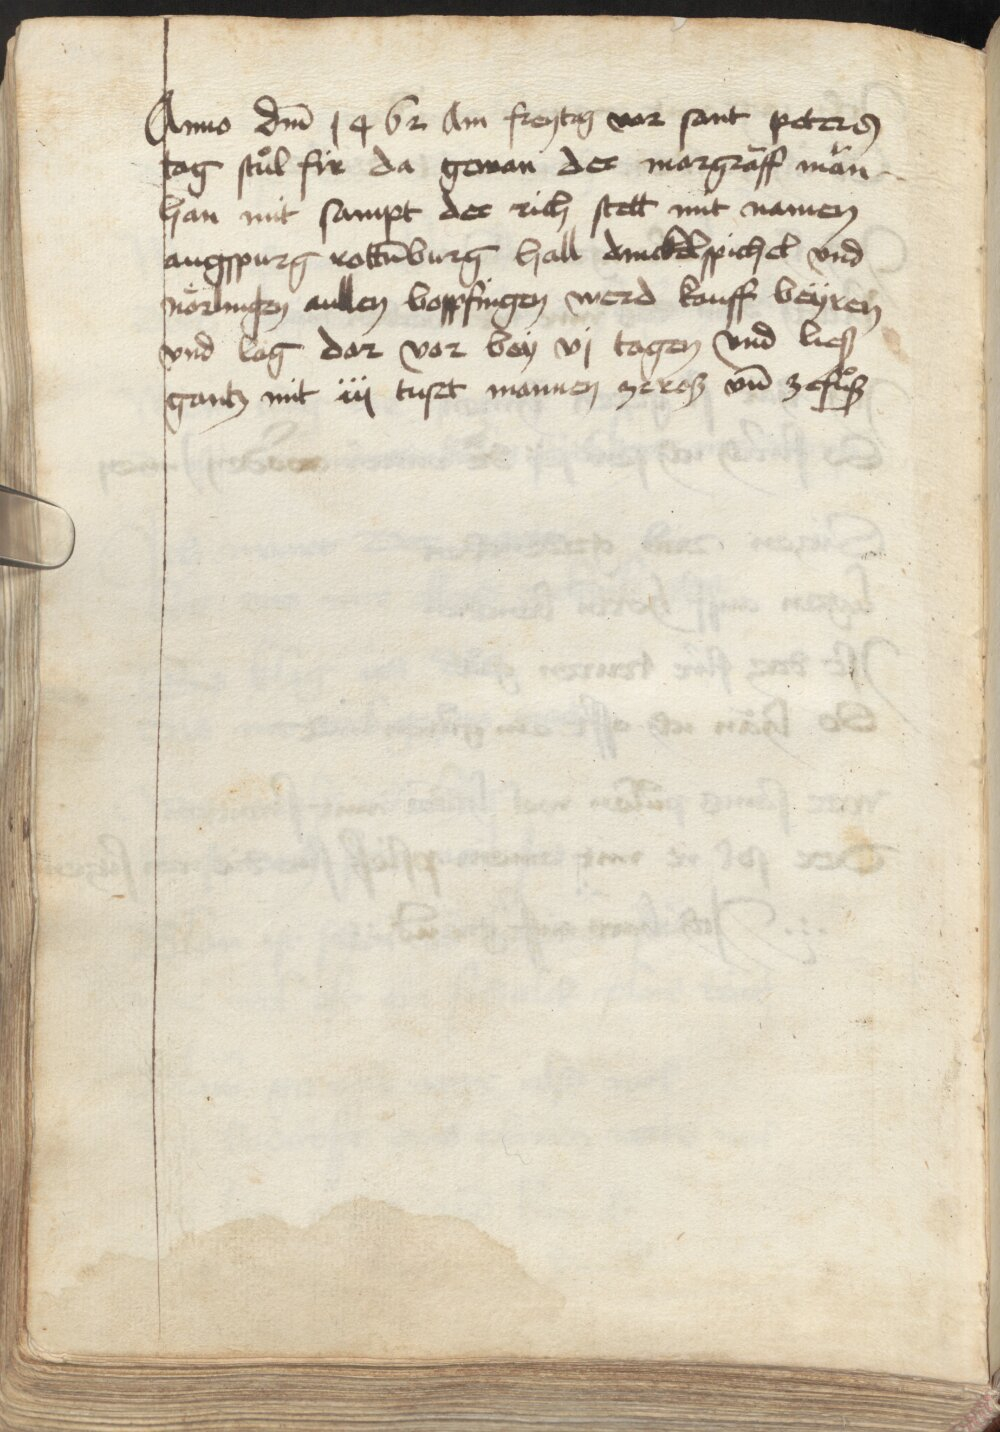 Anno dm̄ 1462 Am freytag vor sant peters
tag stůl fir da gewan der margräff män
han mit sampt der rich stett mit namen
augspurg rottūburg hall dinckelspichel vnd
nördingen aullen bopfingen werd kauff beÿren
vnd lag dar vor bey vj tagen vnd ließ
gantz mit iij tuset mannen zeroß vn̄ zefůß